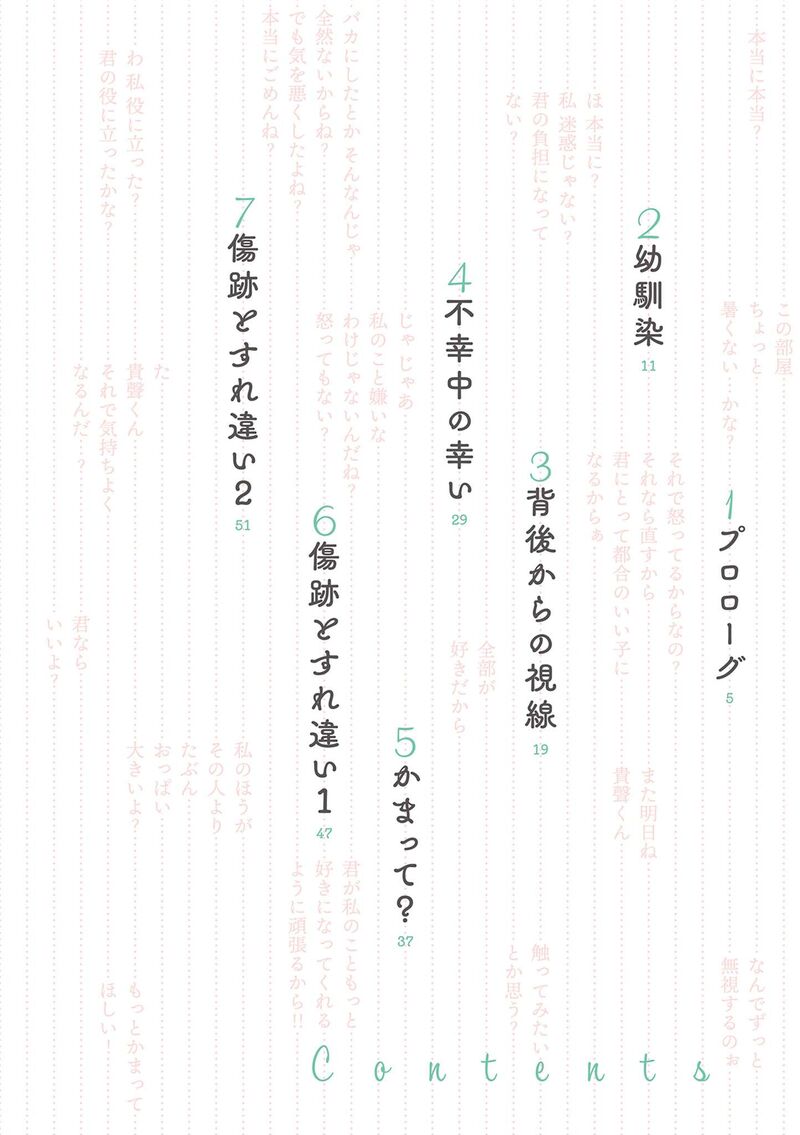 本当に本当?
この部屋
ちょっと
暑くない かな?
1 プロローグ 5
なんでずっと
無視するのぉ
2 幼馴染 11
それで怒ってるからなの?
それなら直すから
君にとって都合のいい子に
なるからぁ
また明日ね
貴聲くん
ほ 本当に?
私 迷惑じゃない?
君の負担になって
ない?
3 背後からの視線 19
触ってみたい
とか思う?
4 不幸中の幸い 29
全部が
好きだから
じゃ じゃあ
私のこと嫌いな
わけじゃないんだね?
怒ってもない?
5 かまって? 37
バカにしたとか そんなんじゃ
全然ないからね?
でも気を悪くしたよね?
本当にごめんね?
6 傷跡とすれ違い1 47
君が私のこともっと
好きになってくれる
ように頑張るから!!
7 傷跡とすれ違い2 51
私のほうが
その人より
たぶん
おっぱい
大きいよ?
わ 私 役に立った?
君の役に立ったかな?
た
貴聲くん
それで気持ちよく
なるんだ ?
君なら
いいよ?
もっとかまって
ほしい!
Contents